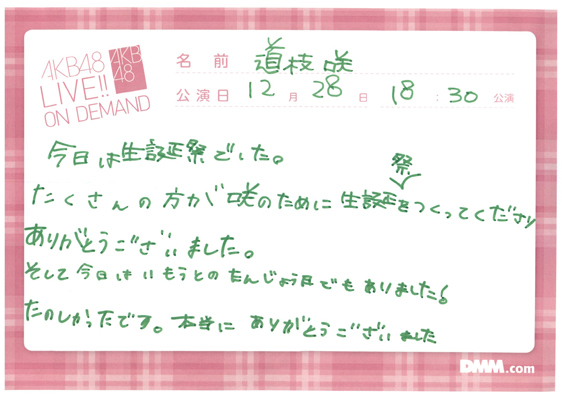 AKB48
LIVE!!
ON DEMAND
AKB
48
名前 道枝咲
公演日 12月28日 18:30公演
今日は生誕祭でした。
祭
たくさんの方が咲のために生誕をつくってくださり
ありがとうございました。
そして今日はいもうとのたんじょう日でもありました!
たのしかったです。本当にありがとうございました
DMM.com